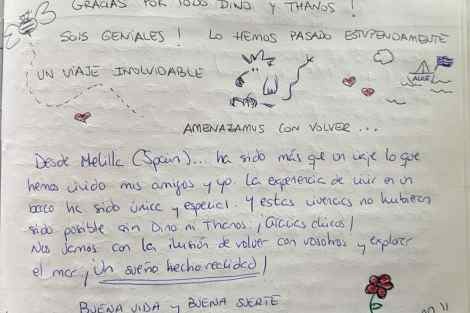 GRACIAS POR TODO DINO Y THANOS!
SOIS GENIALES! LO HEMOS PASADO ESTUPENDAMENTE
UN VIAJE INOLVIDABLE
AMENAZAMOS CON VOLVER ...
Desde Melilla (Spain)... ha sido más que un viaje lo que
hemos vivido mis amigos y yo. La experiencia de vivir en un
barco ha sido única y especial. Y estas vivencias no hubieran
sido posible sin Dino ni Thanos. ¡Gracias chicos!
Nos vamos con la ilusión de volver con vosotros y explorar
el mar, ¡Un sueño hecho realidad!
BUENA VIDA Y BUENA SUERTE